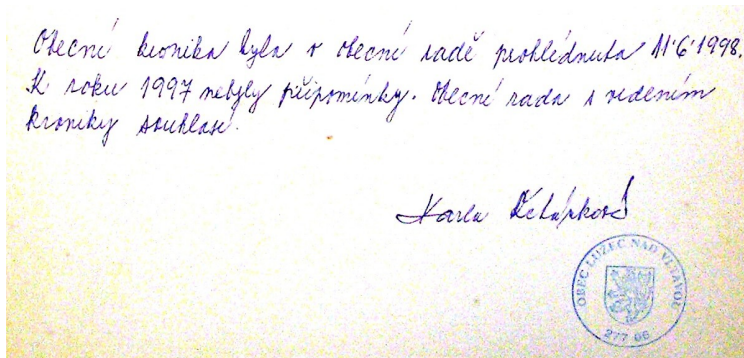 Obecní kronika byla v obecní radě prohlédnuta 11·6·1998.
K roku 1997 nebyly připomínky. Obecní rada s vedením
kroniky souhlasí.
Karla
OBEC LUŽEC NAD VLTAVOU
277 06